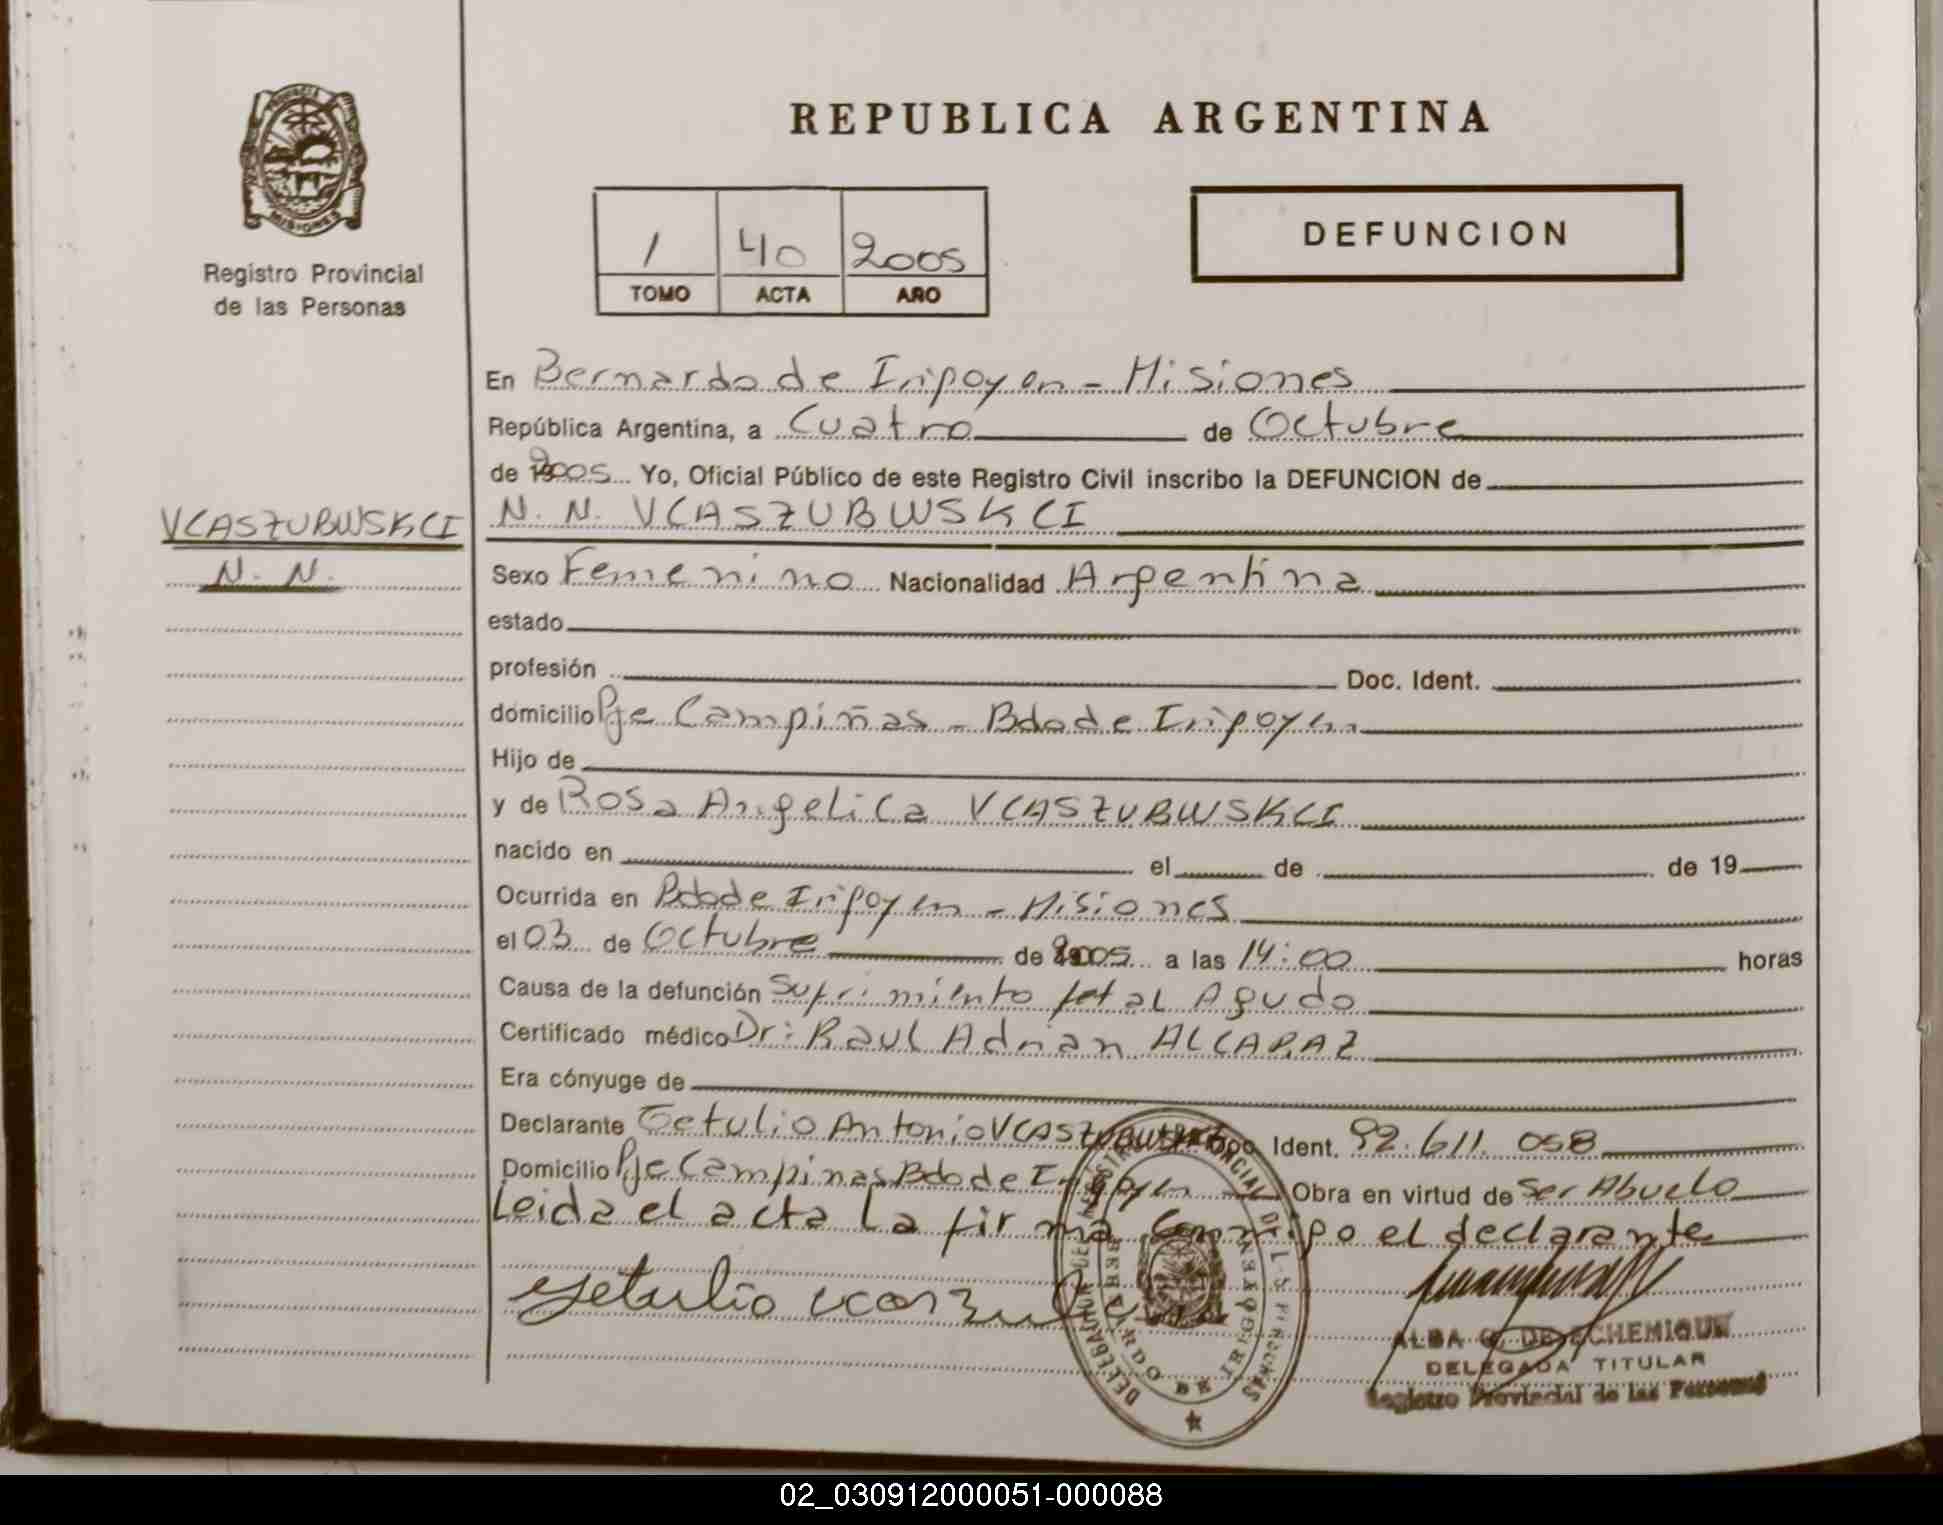 PROVINCIA
MISIONES
Registro Provincial
de las Personas
REPUBLICA ARGENTINA
1 40 2005
TOMO ACTA AÑO
DEFUNCION
En Bernardo de Iripoyen - Misiones
República Argentina, a Cuatro de Octubre
de 2005 Yo, Oficial Público de este Registro Civil inscribo la DEFUNCION de
VCASZUBWSKCI
N. N. VCASZUBWSKCI
N. N.
Sexo Femenino Nacionalidad Argentina
estado
profesión Doc. Ident.
domicilio Pje Campiñas - Bdo de Iripoyen
Hijo de
y de Rosa Angelica VCASZUBWSKCI
nacido en el de de 19
Ocurrida en Bdo de Iripoyen - Misiones
el 03 de Octubre de 2005 a las 14:00 horas
Causa de la defunción Sufrimiento fetal Agudo
Certificado médico Dr: Raul Adrian ALCARAZ
Era cónyuge de
Declarante Getulio Antonio VCASZUBWSKCI Doc. Ident. 92.611.058
Domicilio Pje Campinas Bdo de Iripoyen Obra en virtud de Ser Abuelo
Leida el acta La firma Conmigo el declarante
Getulio
DELEGACION DEL REGISTRO PROVINCIAL DE LAS PERSONAS
BERNARDO DE IRIGOYEN
ALBA G. DE ECHENIQUE
DELEGADA TITULAR
Registro Provincial de las Personas
02_030912000051-000088